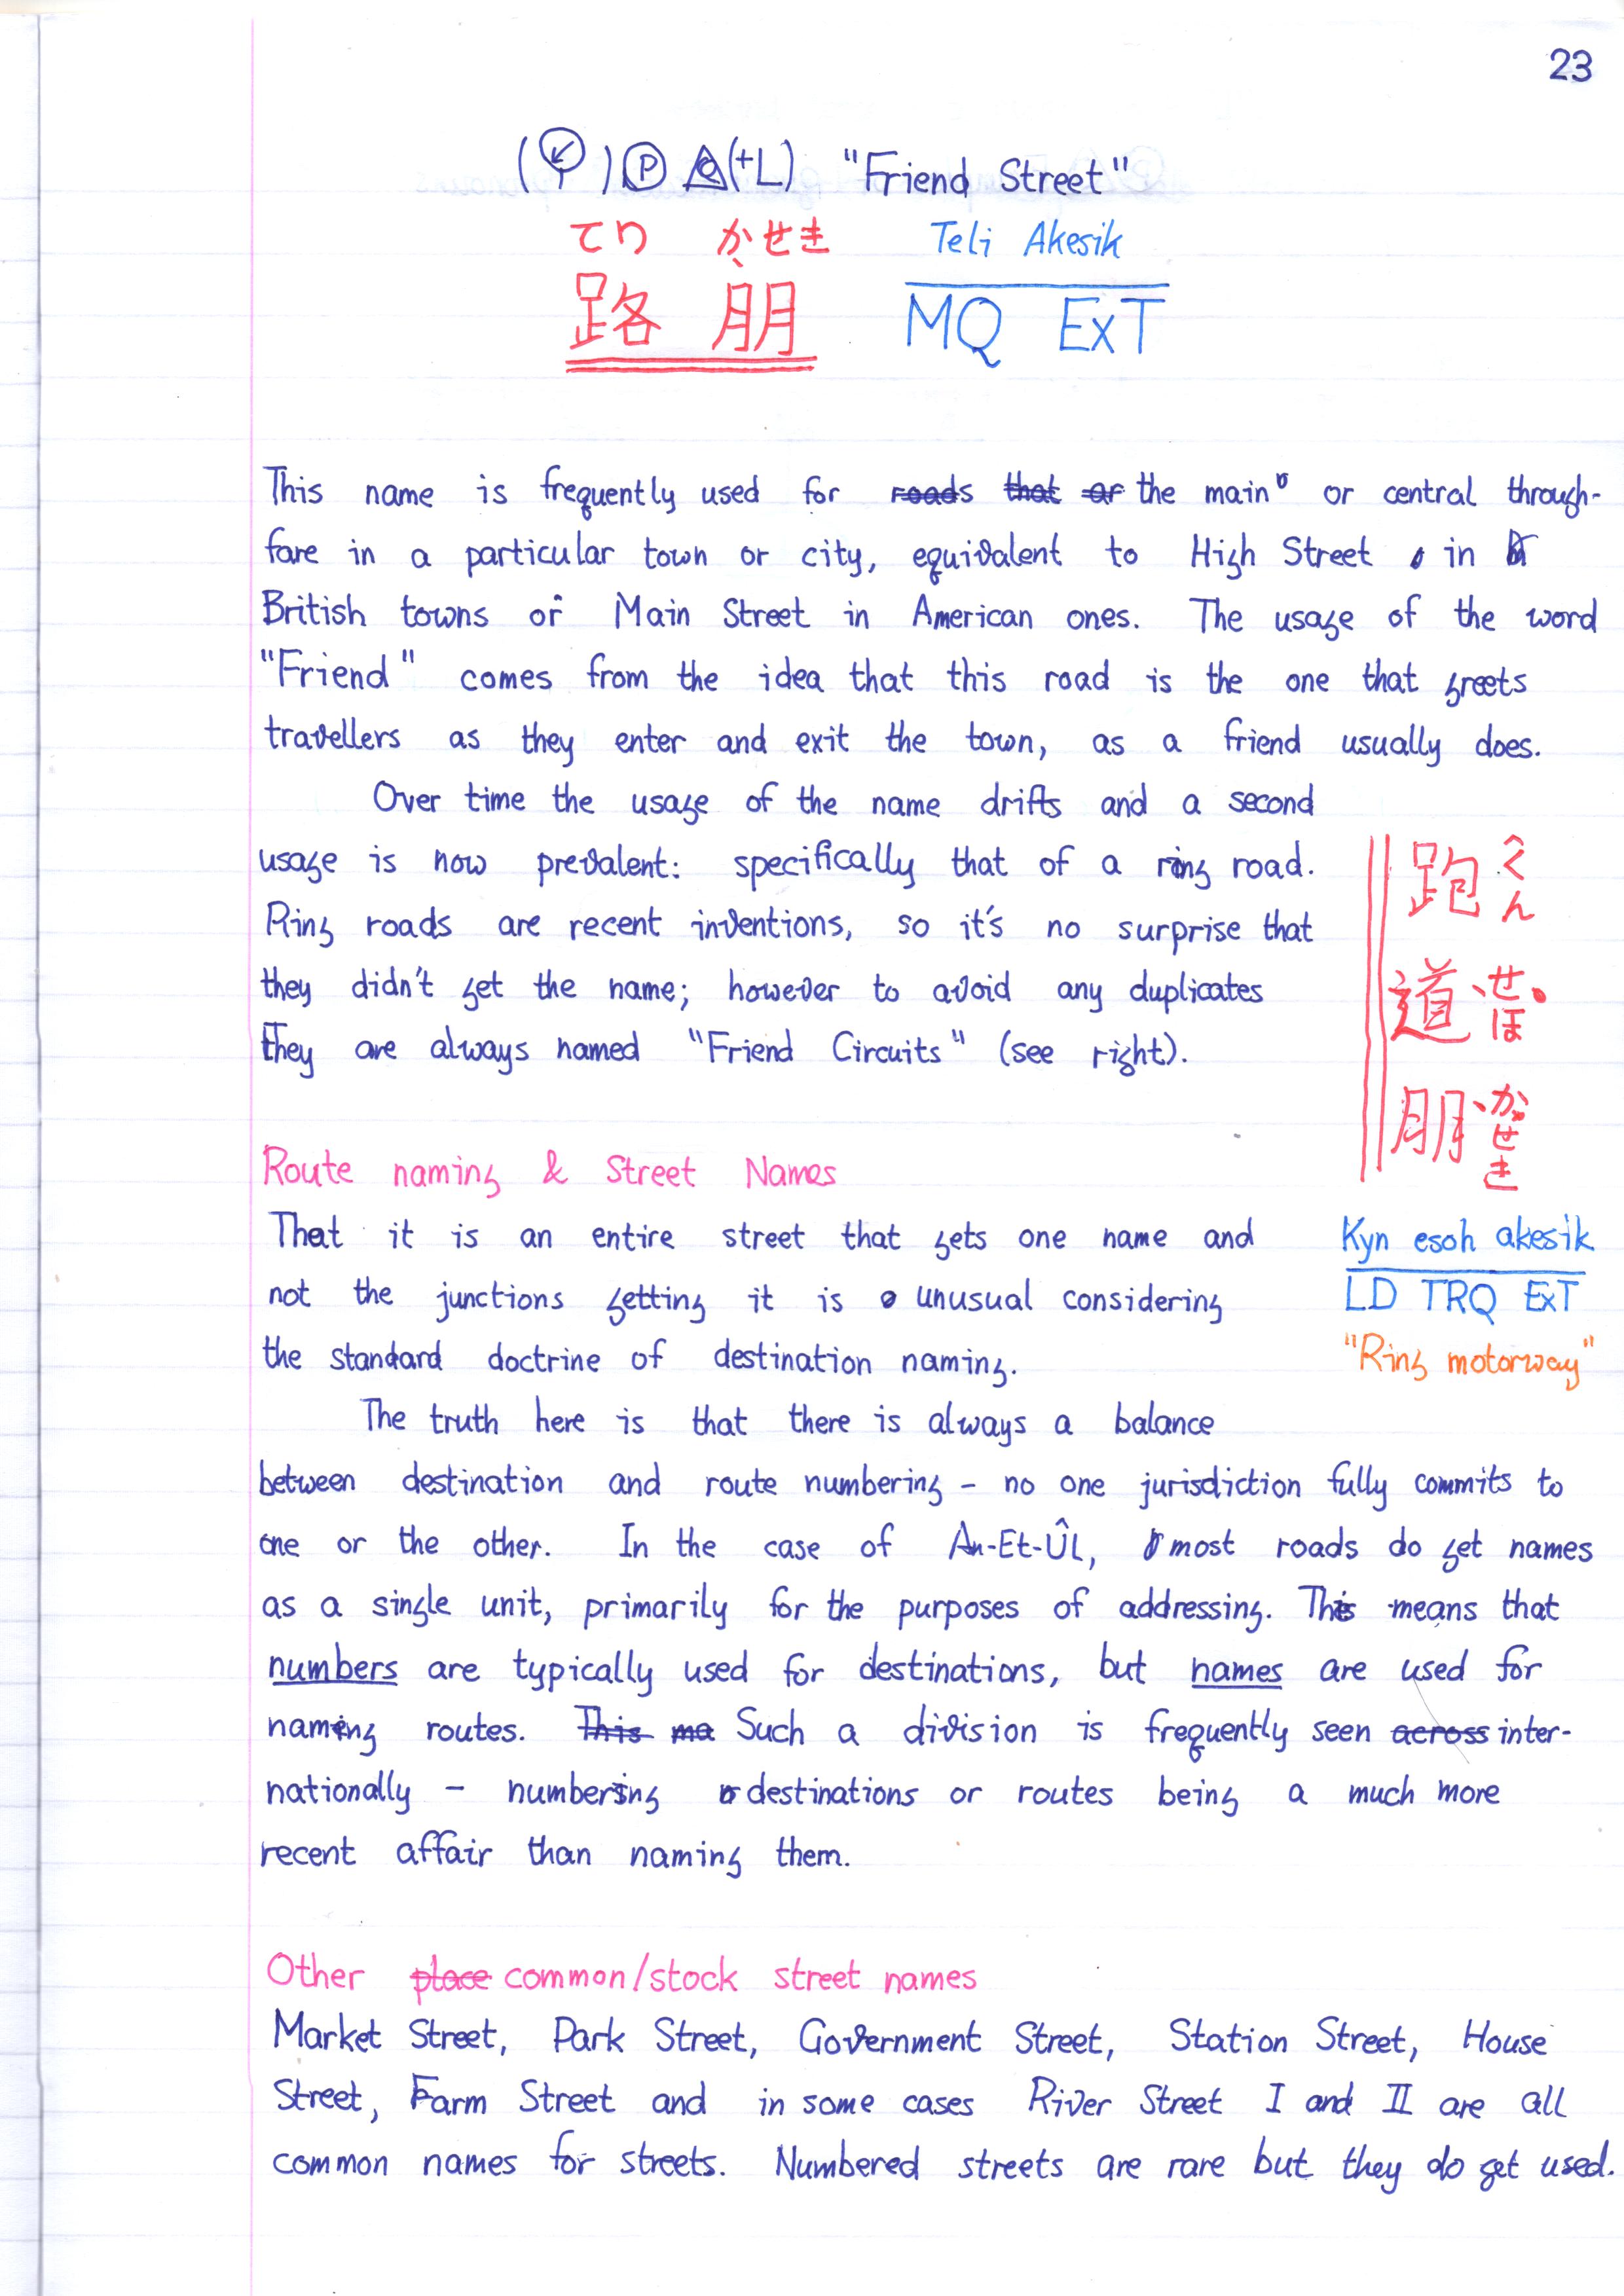 23
(↙) Ⓟ (+L) "Friend Street"
てり か、せき Teli Akesik
路 朋 MQ ExT
This name is frequently used for roads that ar the main or central through-
fare in a particular town or city, equivalent to High Street in
British towns or Main Street in American ones. The usage of the word
"Friend" comes from the idea that this road is the one that greets
travellers as they enter and exit the town, as a friend usually does.
Over time the usage of the name drifts and a second
usage is now prevalent: specifically that of a ring road.
Ring roads are recent inventions, so it's no surprise that
they didn't get the name; however to avoid any duplicates
they are always named "Friend Circuits" (see right).
跑 くん
道 、せ・ほ
朋 、かせき
Kyn esoh akesik
LD TRQ ExT
"Ring motorway"
Route naming & Street Names
That it is an entire street that gets one name and
not the junctions getting it is unusual considering
the standard doctrine of destination naming.
The truth here is that there is always a balance
between destination and route numbering - no one jurisdiction fully commits to
one or the other. In the case of An-Et-ÛL, most roads do get names
as a single unit, primarily for the purposes of addressing. This means that
numbers are typically used for destinations, but names are used for
naming routes. This ma Such a division is frequently seen across inter-
nationally - numbering destinations or routes being a much more
recent affair than naming them.
Other place common/stock street names
Market Street, Park Street, Government Street, Station Street, House
Street, Farm Street and in some cases River Street I and II are all
common names for streets. Numbered streets are rare but they do get used.